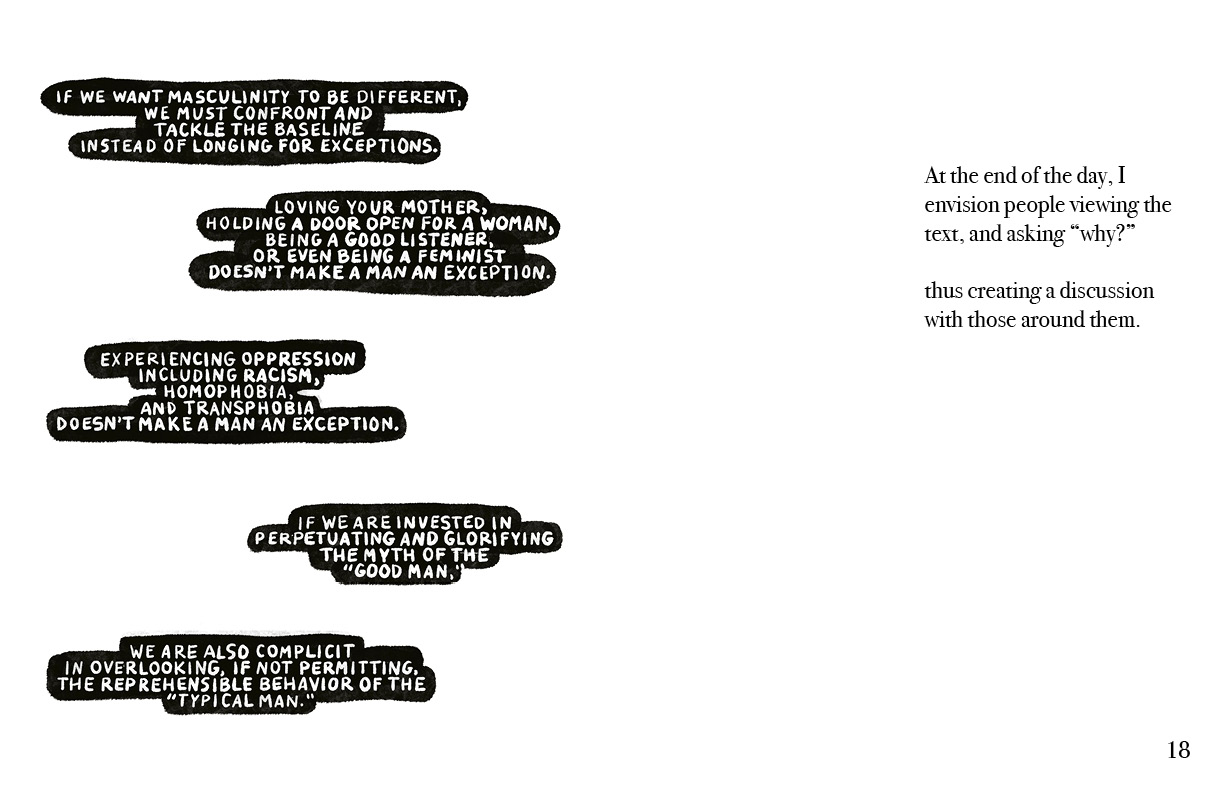 IF WE WANT MASCULINITY TO BE DIFFERENT,
WE MUST CONFRONT AND
TACKLE THE BASELINE
INSTEAD OF LONGING FOR EXCEPTIONS.
LOVING YOUR MOTHER,
HOLDING A DOOR OPEN FOR A WOMAN,
BEING A GOOD LISTENER,
OR EVEN BEING A FEMINIST
DOESN'T MAKE A MAN AN EXCEPTION.
EXPERIENCING OPPRESSION
INCLUDING RACISM,
HOMOPHOBIA,
AND TRANSPHOBIA
DOESN'T MAKE A MAN AN EXCEPTION.
IF WE ARE INVESTED IN
PERPETUATING AND GLORIFYING
THE MYTH OF THE
"GOOD MAN,"
WE ARE ALSO COMPLICIT
IN OVERLOOKING, IF NOT PERMITTING,
THE REPREHENSIBLE BEHAVIOR OF THE
"TYPICAL MAN."
At the end of the day, I
envision people viewing the
text, and asking “why?”
thus creating a discussion
with those around them.
18